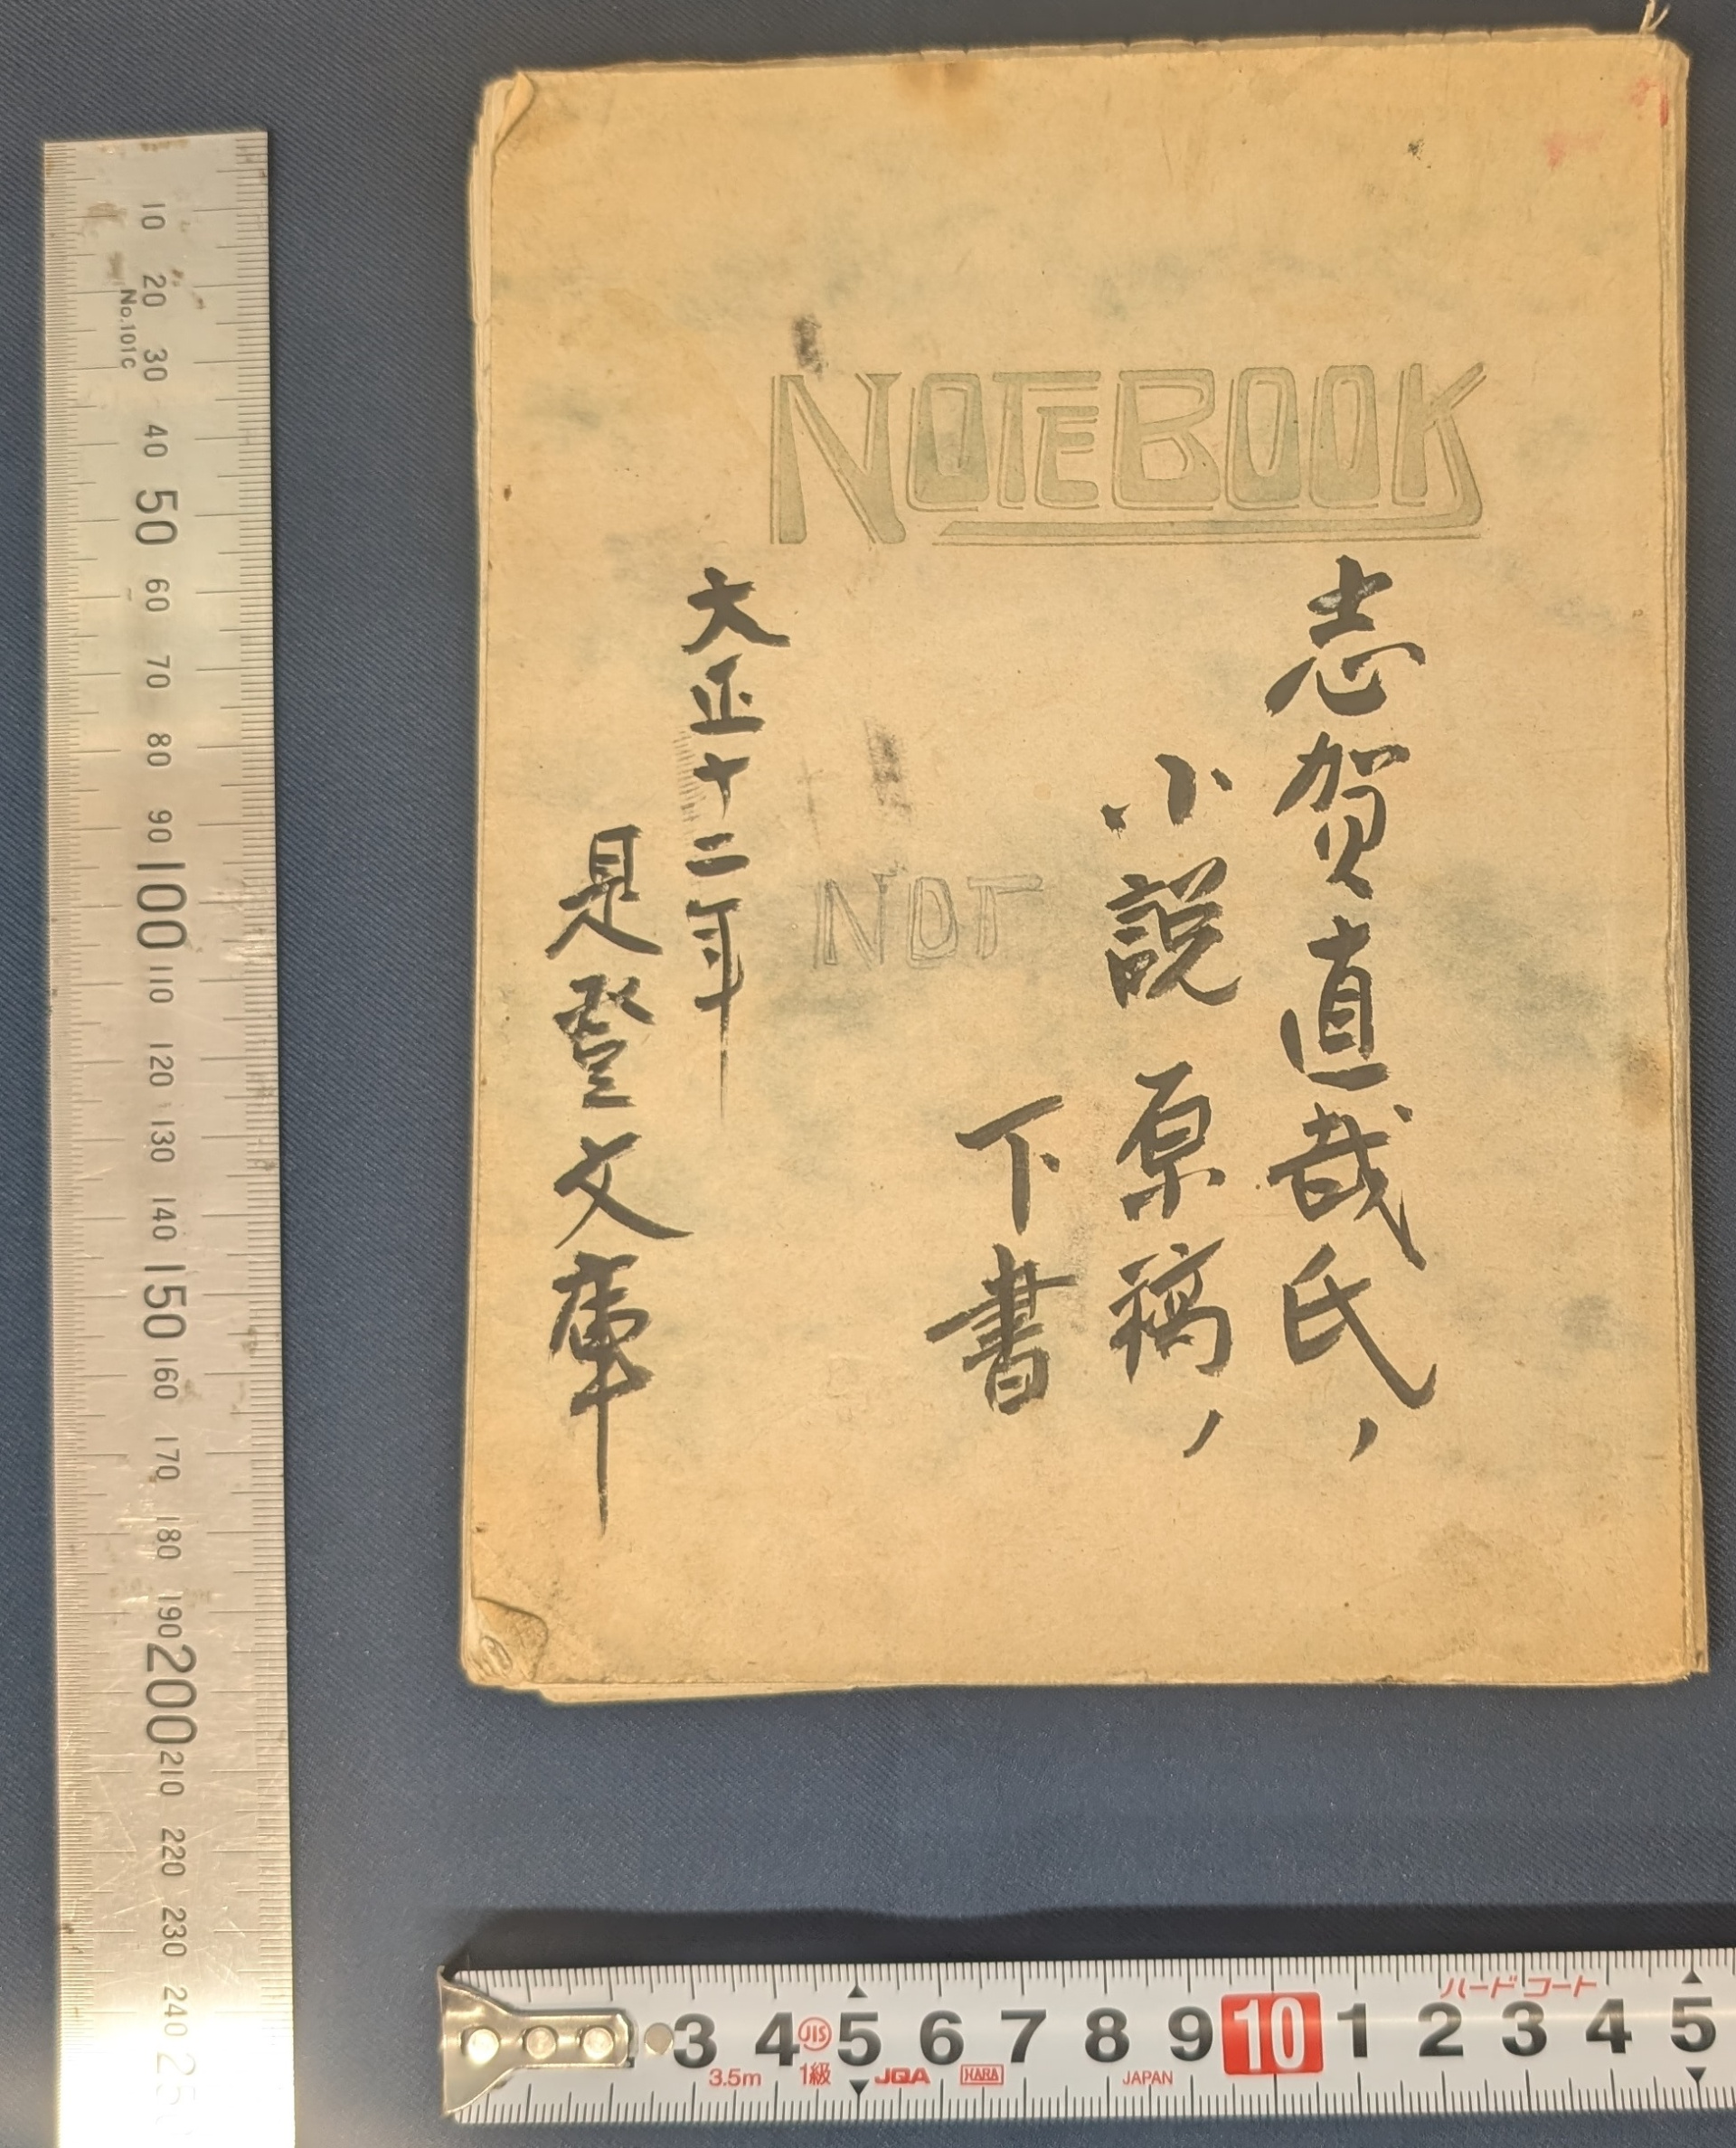 NOTEBOOK
志賀直哉氏,
小説 原稿,
下書
NOT
大正十二年
是登文庫
No.101C
10
20
30
40
50
60
70
80
90
100
110
120
130
140
150
160
170
180
190
200
210
220
230
240
250
ハードコート
3 4 JIS 5 6 7 8 9 10 1 2 3 4 5
3.5m 1級 JQA HARA JAPAN